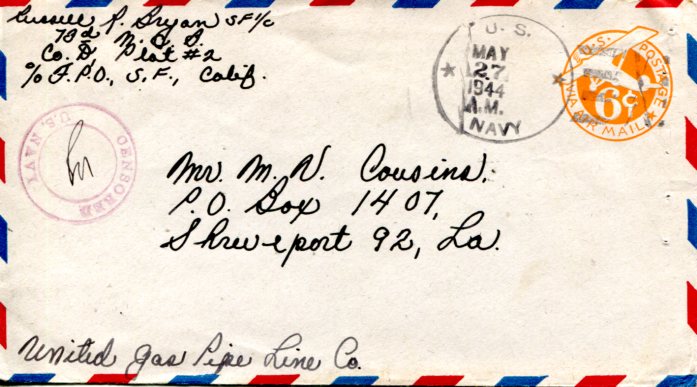 Russell P. Bryan SF 1/c
73rd N.C.B.
Co. D, Plat #2
c/o F.P.O., S.F., Calif.
U.S.
MAY
27
1944
A.M.
NAVY
U.S. POSTAGE
6¢
VIA AIR MAIL
CENSORED
U.S. NAVY
Mr. M. N. Cousins,
P.O. Box 1407,
Shreveport 92, La.
United Gas Pipe Line Co.